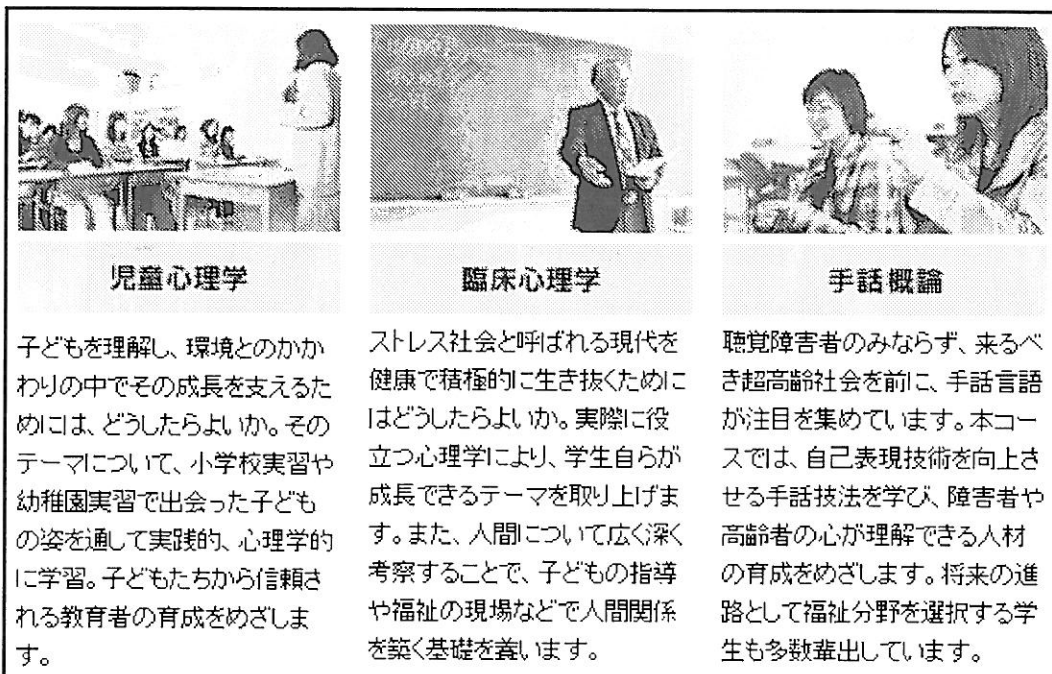 児童心理学
子どもを理解し、環境とのかか
わりの中でその成長を支えるた
めには、どうしたらよいか。その
テーマについて、小学校実習や
幼稚園実習で出会った子ども
の姿を通して実践的、心理学的
に学習。子どもたちから信頼さ
れる教育者の育成をめざしま
す。
臨床心理学
ストレス社会と呼ばれる現代を
健康で積極的に生き抜くために
はどうしたらよいか。実際に役
立つ心理学により、学生自らが
成長できるテーマを取り上げま
す。また、人間について広く深く
考察することで、子どもの指導
や福祉の現場などで人間関係
を築く基礎を養います。
手話概論
聴覚障害者のみならず、来るべ
き超高齢社会を前に、手話言語
が注目を集めています。本コー
スでは、自己表現技術を向上さ
せる手話技法を学び、障害者や
高齢者の心が理解できる人材
の育成をめざします。将来の進
路として福祉分野を選択する学
生も多数輩出しています。